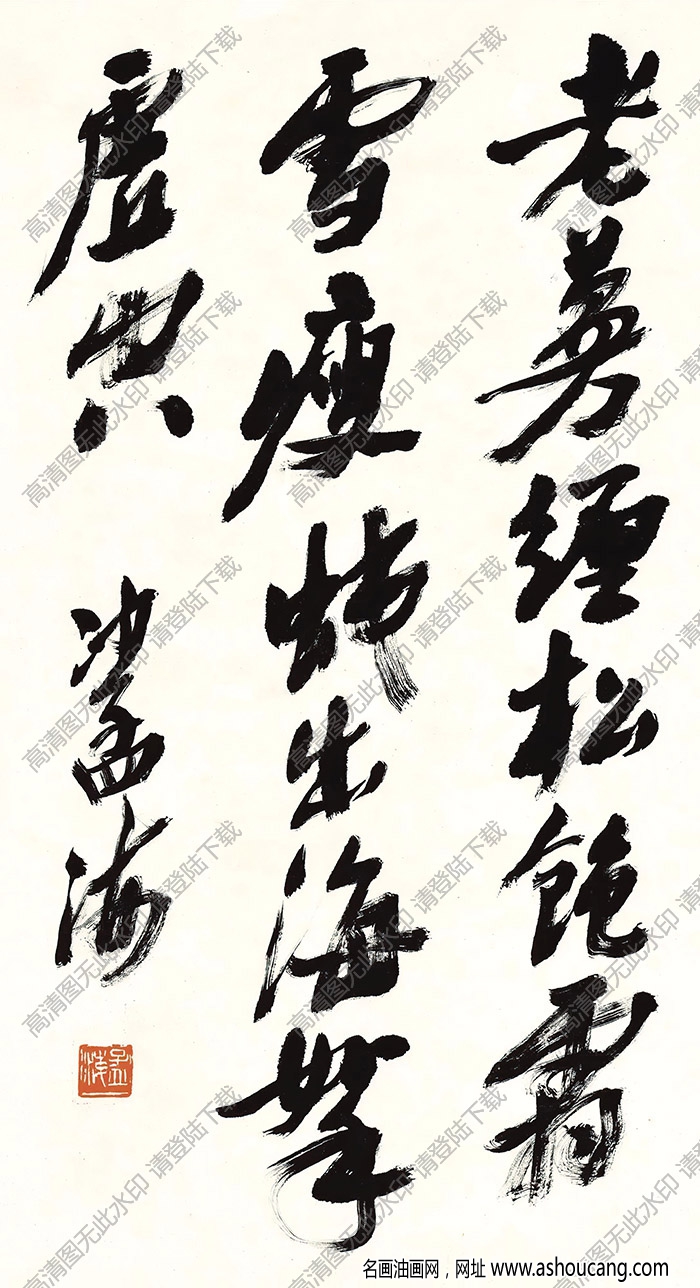 老蔓纏松飽霜
雪瘦蛟出海拏
虛空
沙孟海
孟海
高清图无此水印 请登陆下载
名画油画网，网址 www.ashoucang.com